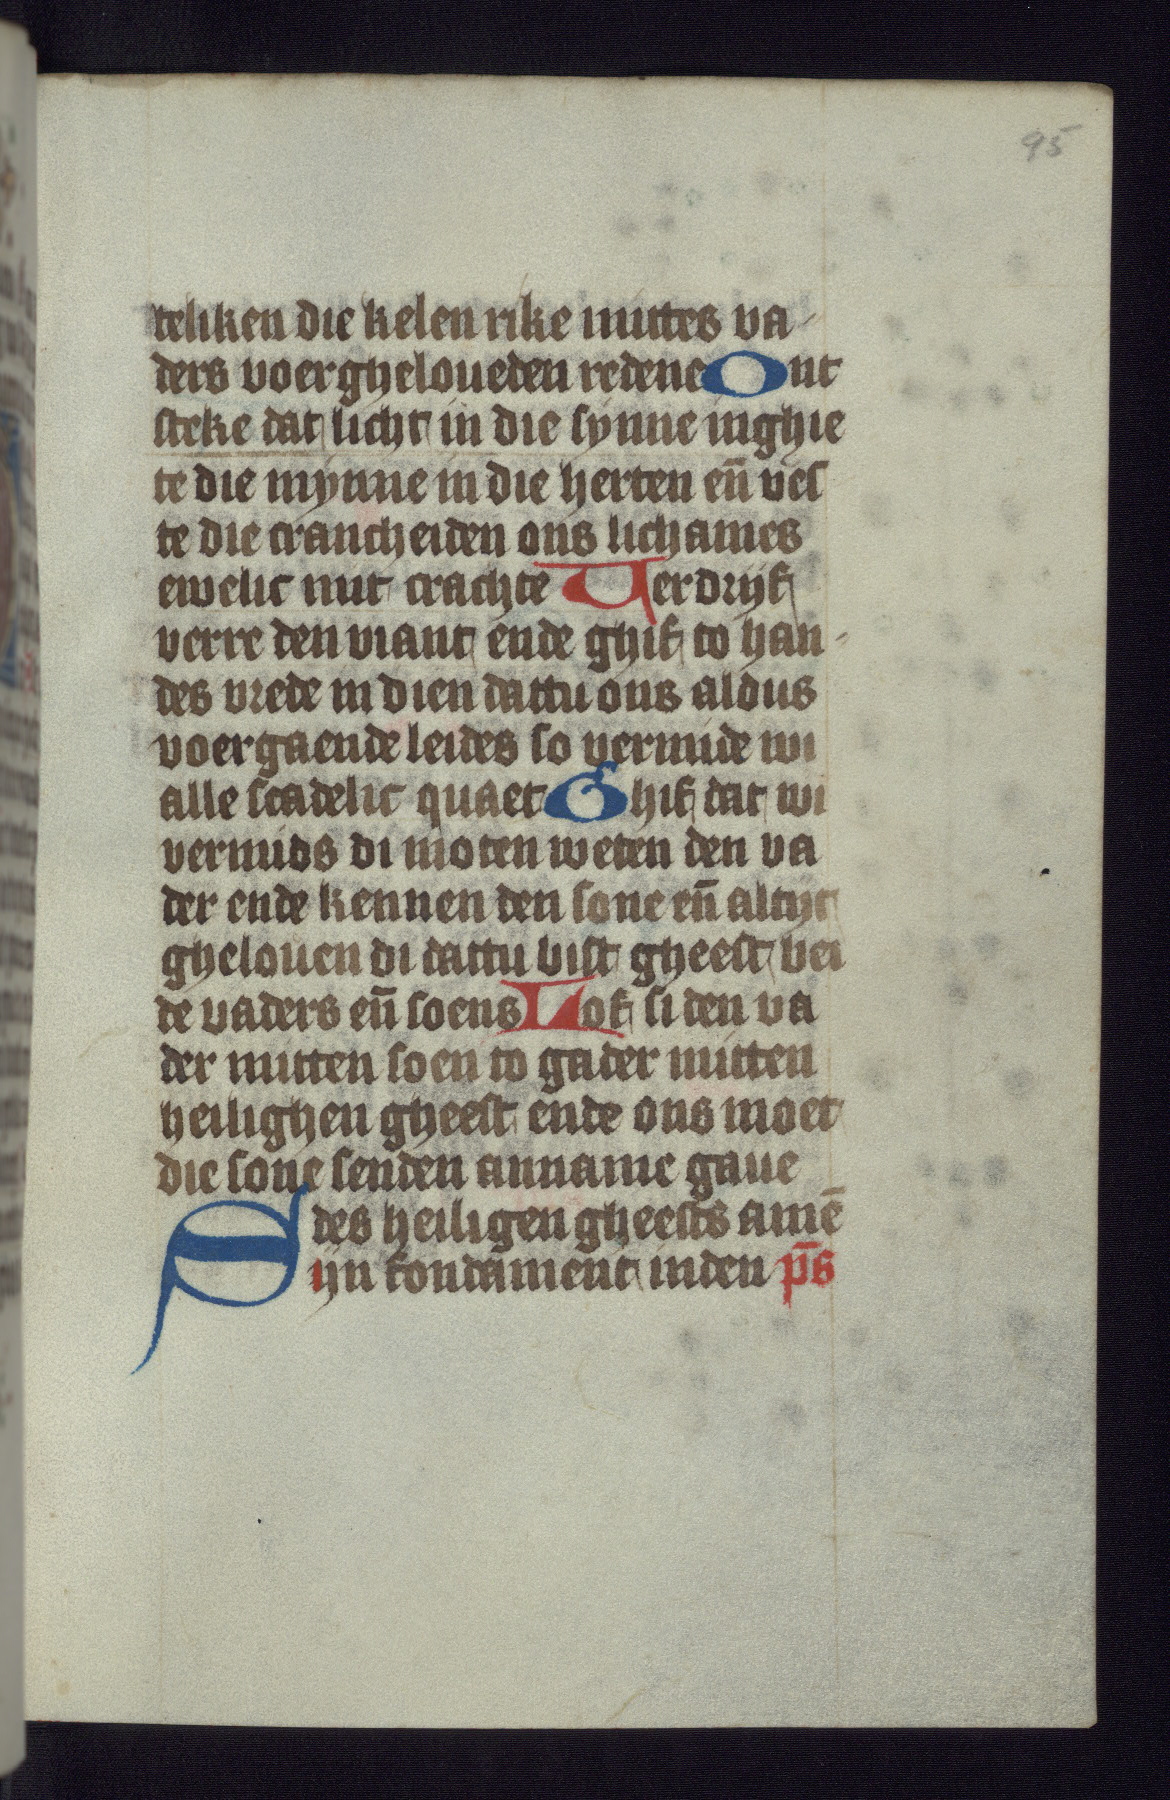 95
teliken die kelen rike mittes va-
ders voergheloueden redene Ont
steke dat licht in die synne inghie
te die mynne in die herten en̄ ves
te die crancheiden ons lichames
ewelic mit crachte Uerdrijf
verre den viant ende ghif to han-
des vrede in dien dattu ons aldus
voergaende leides so vermide wi
alle scadelic quaet Ghif dat wi
vermids di moten weten den va
der ende kennen den sone en̄ altijt
ghelouen di dattu bist gheest bei
de vaders en̄ soens Lof si den va
der mitten soen to gader mitten
heilighen gheest ende ons moet
die sone senden anname gaue
des heiligen gheests amē
Sijn fondament in den p̄s